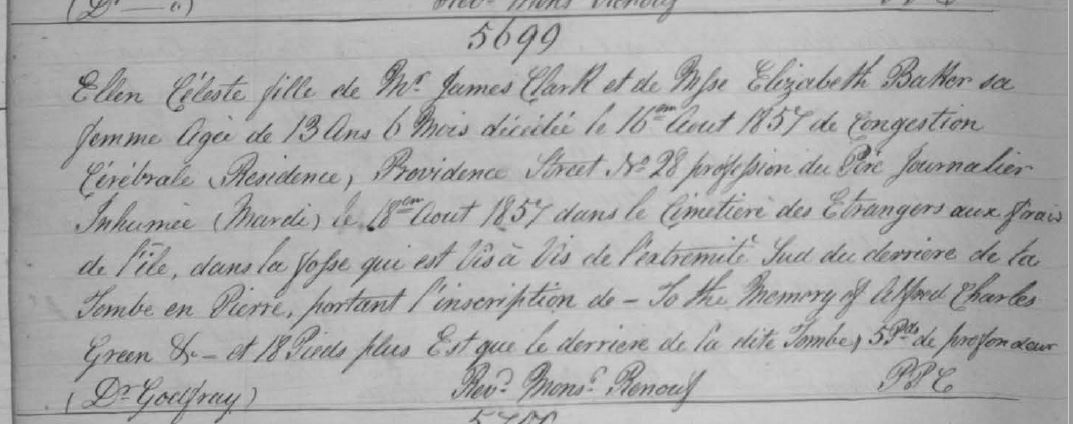 5699
Ellen Céleste fille de Mr. James Clark et de Msse Elizabeth Batter sa
femme Agée de 13 Ans 6 Mois décédée le 16em Aout 1857 de Congestion
Cérébrale, Residence, Providence Street No 28 profession du Père Journalier
Inhumée (Mardi) le 18em Aout 1857 dans le Cimetière des Etrangers aux frais
de l'île, dans la fosse qui est Vis à Vis de l'extremité Sud du derriere de la
Tombe en Pierre, portant l'inscription de – To the Memory of Alfred Charles
Green &c – et 18 Pieds plus Est que le derriere de la dite Tombe, 5 Pds de profondeur
(Dr Godfray) Revd. Monsr. Renouf PPC